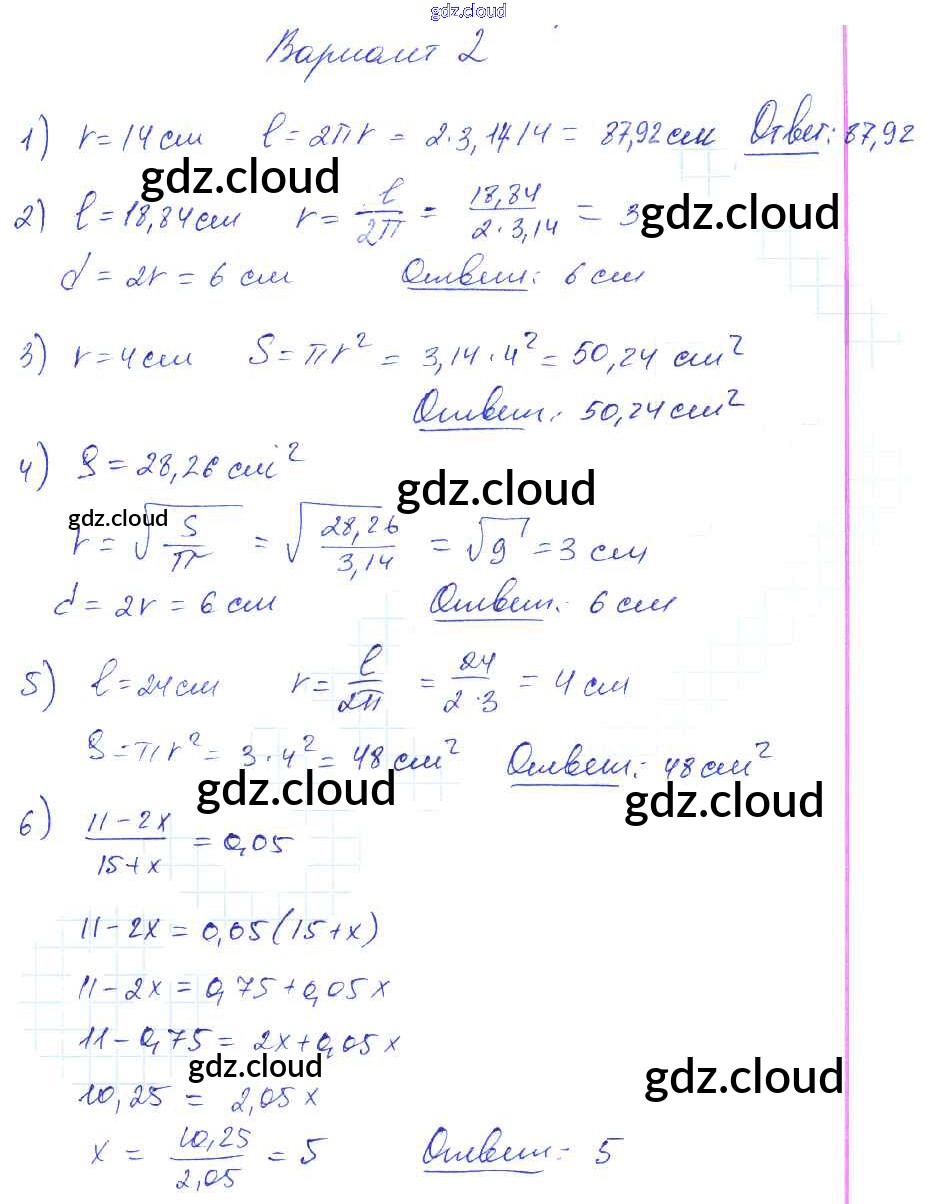 gdz.cloud
Вариант 2
1) r = 14 см l = 2πr = 2·3,14·14 = 87,92 см Ответ: 87,92
gdz.cloud
2) l = 18,84 см r = l/2π = 18,84/2·3,14 = 3 gdz.cloud
d = 2r = 6 см Ответ: 6 см
3) r = 4 см S = πr² = 3,14·4² = 50,24 см²
Ответ: 50,24 см²
4) S = 28,26 см²
gdz.cloud
gdz.cloud
r = √(S/π) = √(28,26/3,14) = √9 = 3 см
d = 2r = 6 см Ответ: 6 см
5) l = 24 см r = l/2π = 24/2·3 = 4 см
S = πr² = 3·4² = 48 см² Ответ: 48 см²
gdz.cloud gdz.cloud
6) (11-2x)/(15+x) = 0,05
11-2x = 0,05(15+x)
11-2x = 0,75+0,05x
11-0,75 = 2x+0,05x
gdz.cloud gdz.cloud
10,25 = 2,05x
x = 10,25/2,05 = 5 Ответ: 5